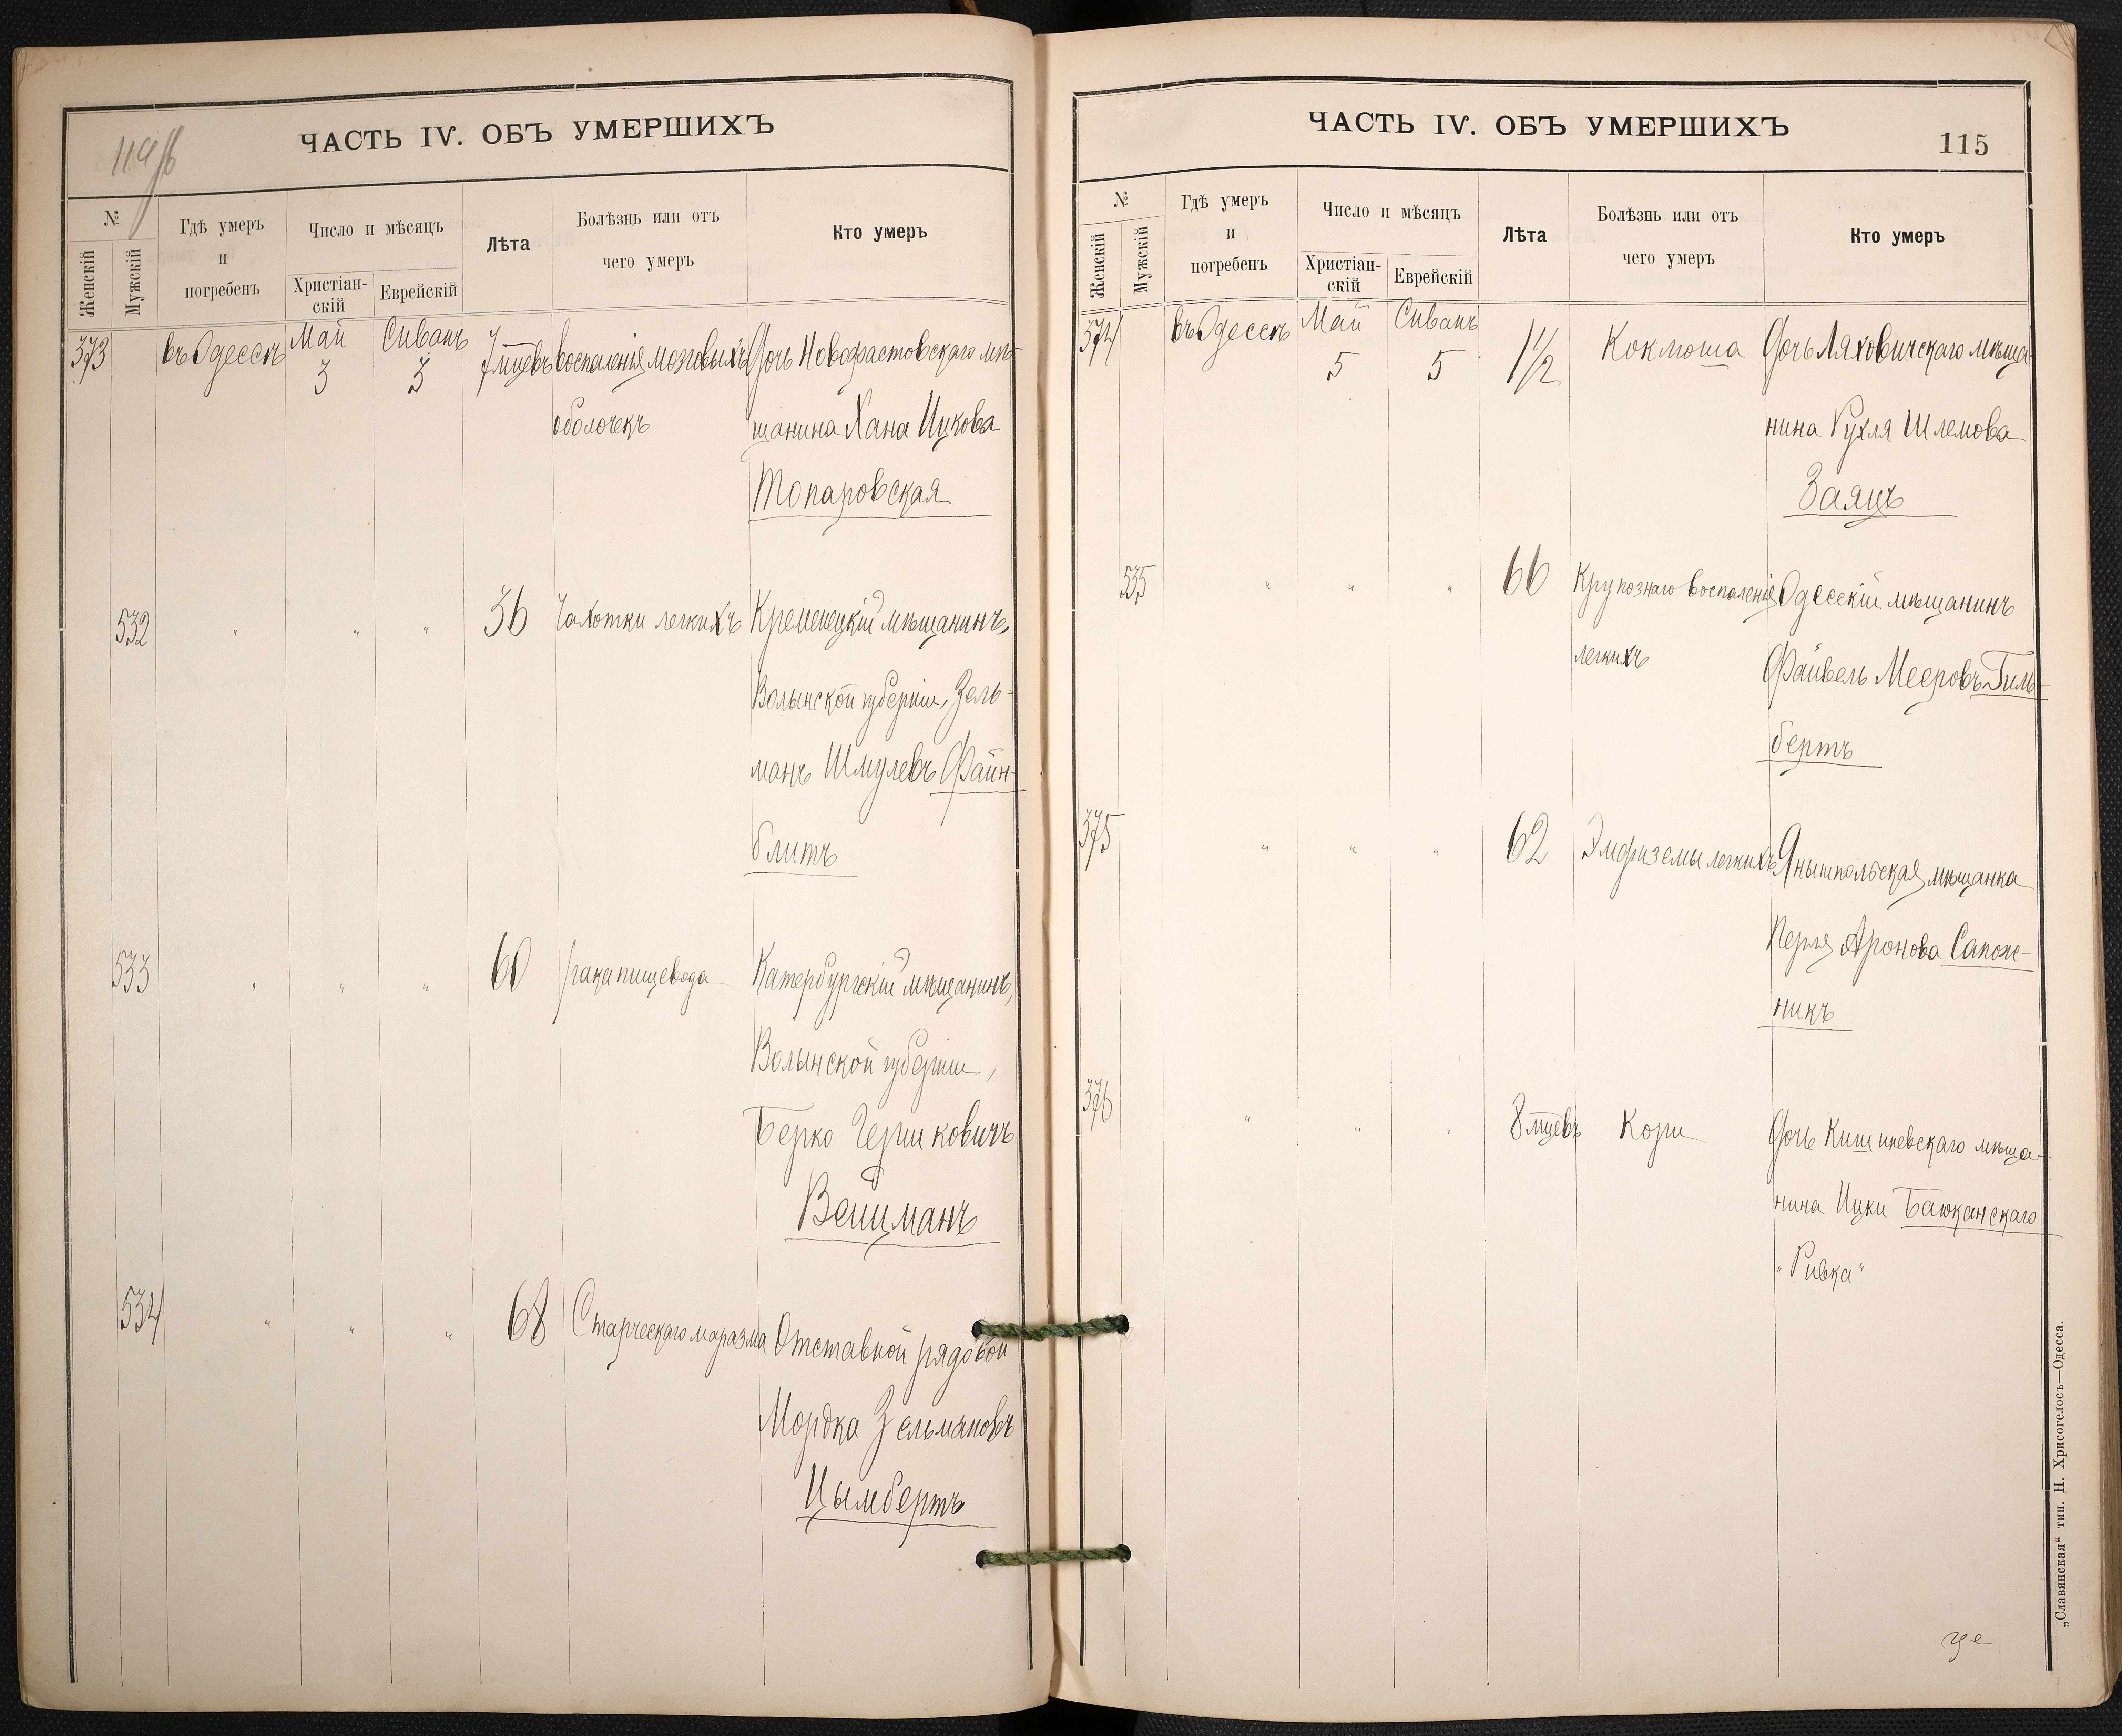 ЧАСТЬ IV. ОБЪ УМЕРШИХЪ
№
Женскій
Мужскій
Гдѣ умеръ
и
погребенъ
Число и мѣсяцъ
Христіан-
скій
Еврейскій
Лѣта
Болѣзнь или отъ
чего умеръ
Кто умеръ
373 въ Одессѣ Май 3 Сиванъ 3 7 мцевъ воспаленія мозговыхъ Дочь Новофастовскаго мѣ-
оболочекъ щанина Хана Ицкова
Топаровская
532 " " " 36 Чахотки легкихъ Кременецкій мѣщанинъ,
Волынской губерніи, Зель-
манъ Шмулевъ Файн-
блитъ
533 " " " 60 рака пищевода Катербургскій мѣщанинъ,
Волынской губерніи,
Берко Гершковичъ
Вейцманъ
534 " " " 68 Старческаго маразма Отставной рядовой
Мордка Зельмановъ
Цымбертъ
ЧАСТЬ IV. ОБЪ УМЕРШИХЪ
115
№
Женскій
Мужскій
Гдѣ умеръ
и
погребенъ
Число и мѣсяцъ
Христіан-
скій
Еврейскій
Лѣта
Болѣзнь или отъ
чего умеръ
Кто умеръ
374 въ Одессѣ Май 5 Сиванъ 5 1½ Коклюша Дочь Ляховичскаго мѣща-
нина Рухля Шлемова
Заяцъ
535 " " " 66 Крупознаго воспаленія Одесскій мѣщанинъ
легкихъ Файвель Мееровъ Гиль-
бертъ
375 " " " 62 Эмфиземы легкихъ Янышпольская мѣщанка
Перля Аронова Сапож-
никъ
376 " " " 8 мцевъ Кори Дочь Кишиневскаго мѣща-
нина Ицки Баюканскаго
"Ривка"
„Славянская“ тип. Н. Хрисогелосъ—Одесса.